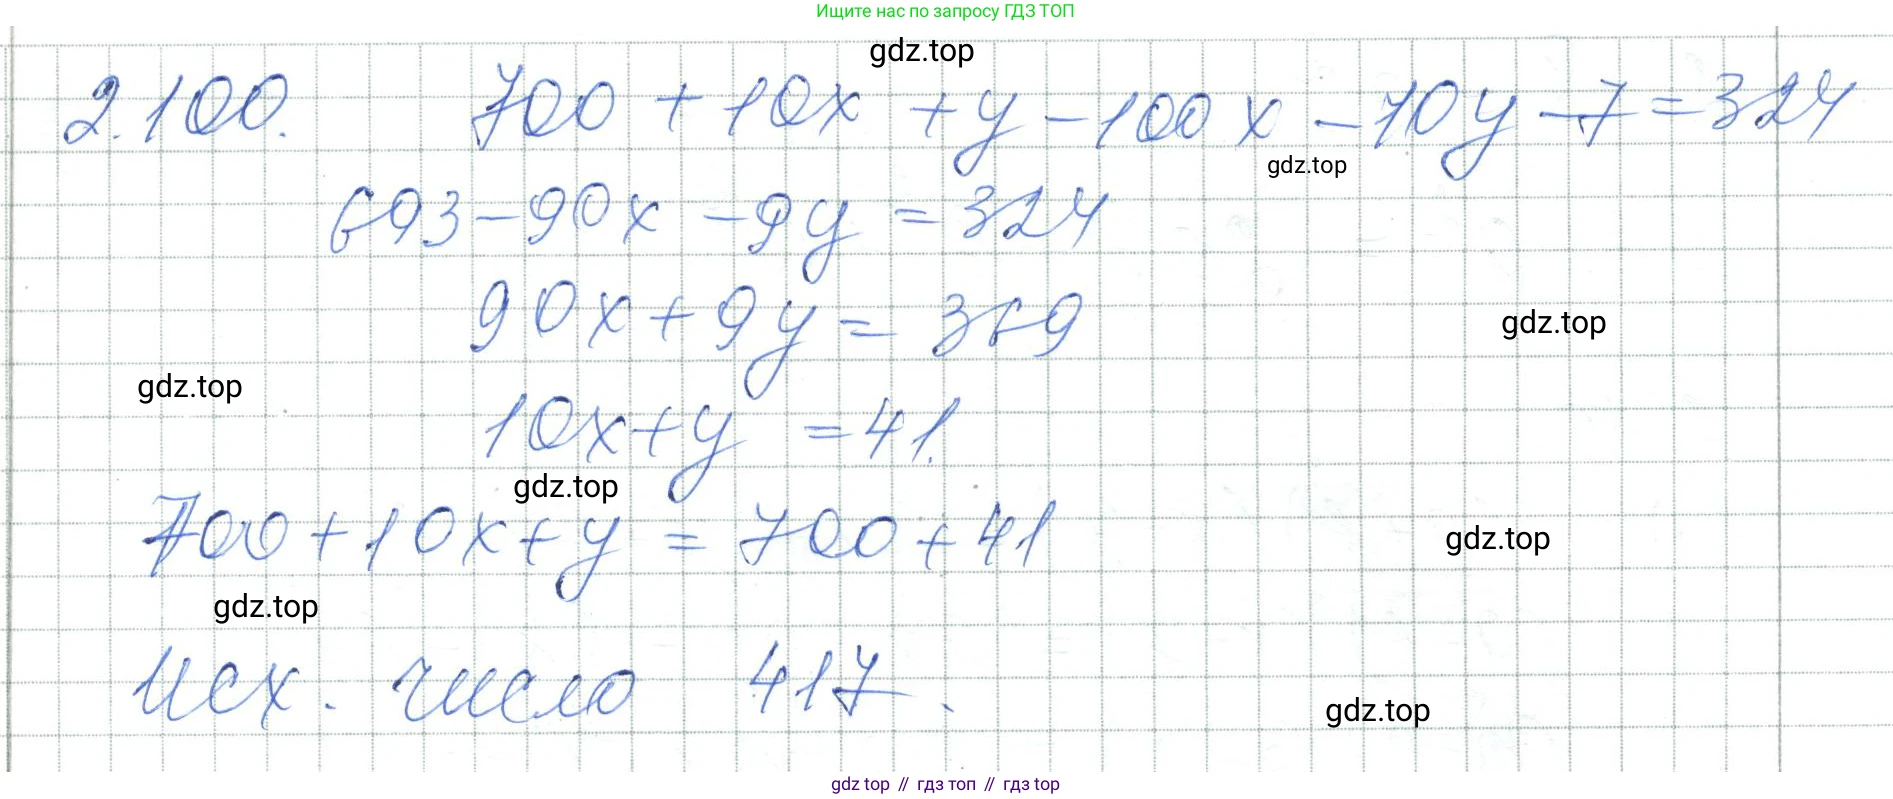 Ищите нас по запросу ГДЗ ТОП
gdz.top
2.100. 700 + 10x + y - 100x - 10y - 7 = 324
gdz.top
693 - 90x - 9y = 324
90x + 9y = 369
gdz.top
gdz.top
10x + y = 41.
gdz.top
700 + 10x + y = 700 + 41
gdz.top
gdz.top
Исх. число 417.
gdz.top
gdz top // гдз топ // гдз top